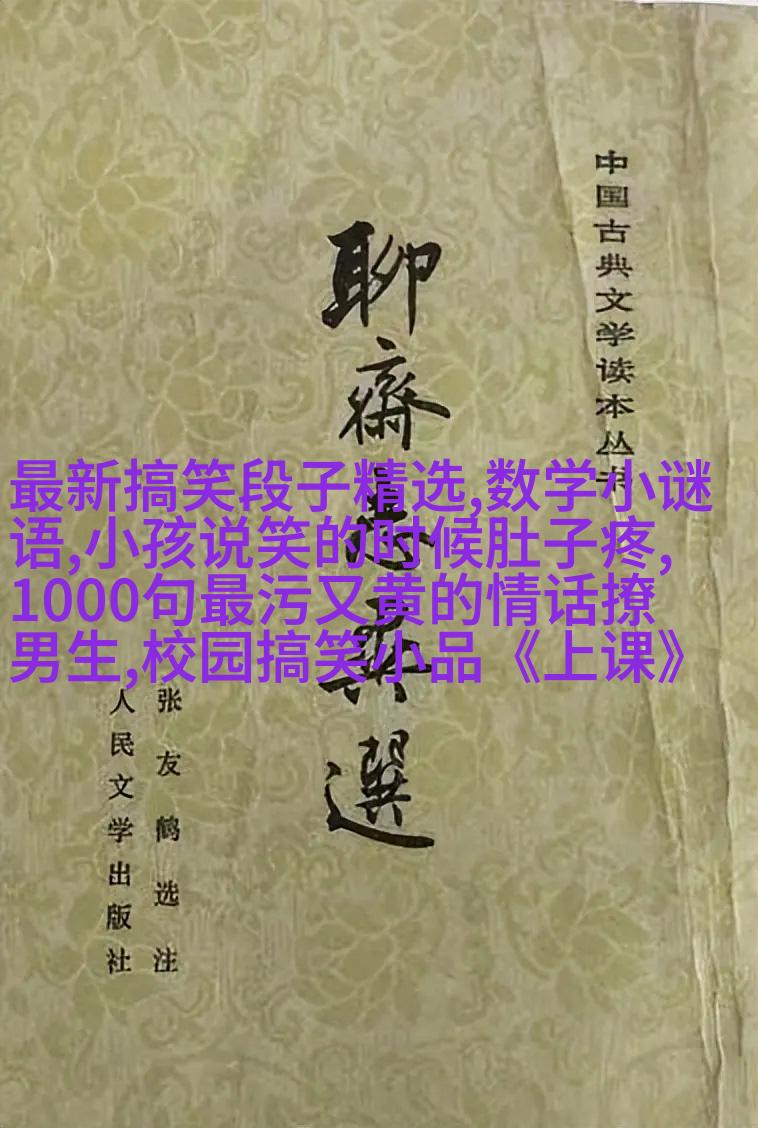 中国古典文学读本丛书
聊齋志異選
最新搞笑段子精选,数学小谜
语,小孩说笑的时候肚子疼,
1000句最污又黄的情话撩
男生,校园搞笑小品《上课》
张友鹤选注
人民文学出版社